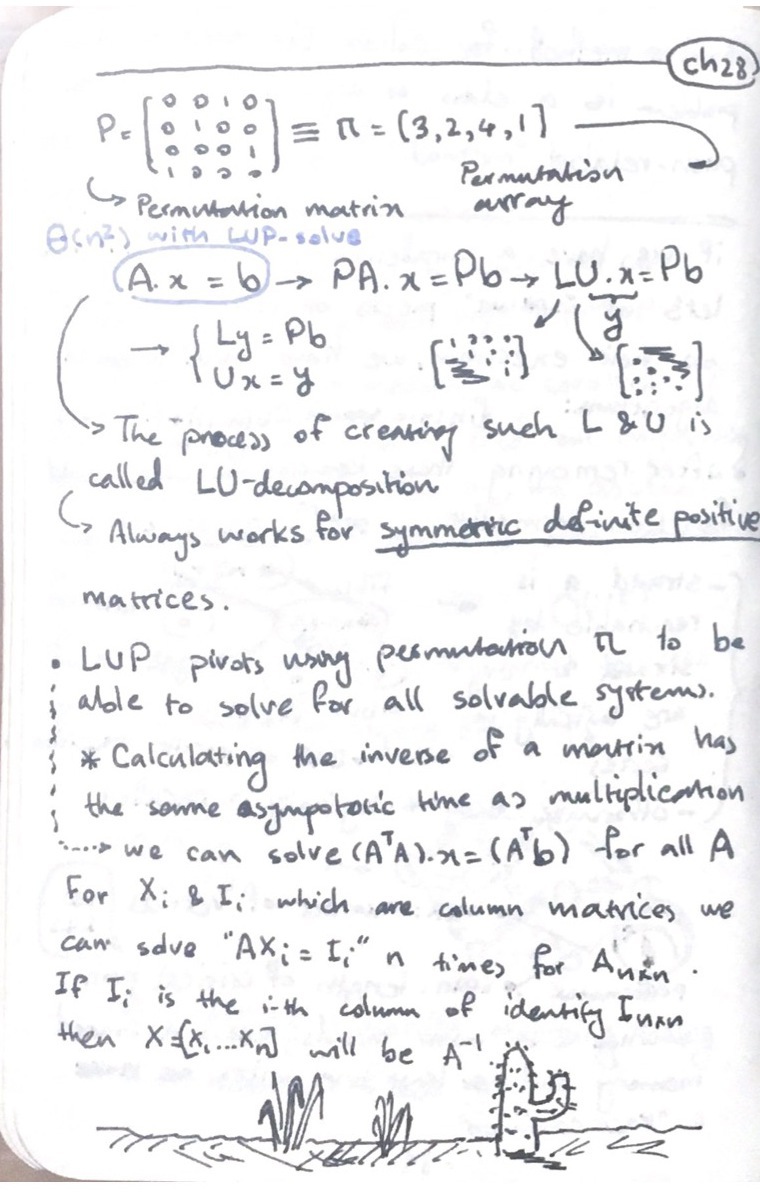 ch28
P = [0 0 1 0
0 1 0 0
0 0 0 1
1 0 0 0] ≡ π = (3,2,4,1]
Permutation array
↳ Permutation matrix
Θ(n²) with LUP-solve
A.x = b → PA.x = Pb → LU.x = Pb
y
→ { Ly = Pb
Ux = y
↳ The process of creating such L & U is
called LU-decomposition
↳ Always works for symmetric definite positive
matrices.
• LUP pivots using permutation π to be
able to solve for all solvable systems.
* Calculating the inverse of a matrix has
the same asympototic time as multiplication
⇢ we can solve (AᵀA).x = (Aᵀb) for all A
For Xi & Ii which are column matrices we
can solve "AXi = Ii" n times for Anxn.
If Ii is the i-th column of identify Inxn
then X=[X1...Xn] will be A⁻¹